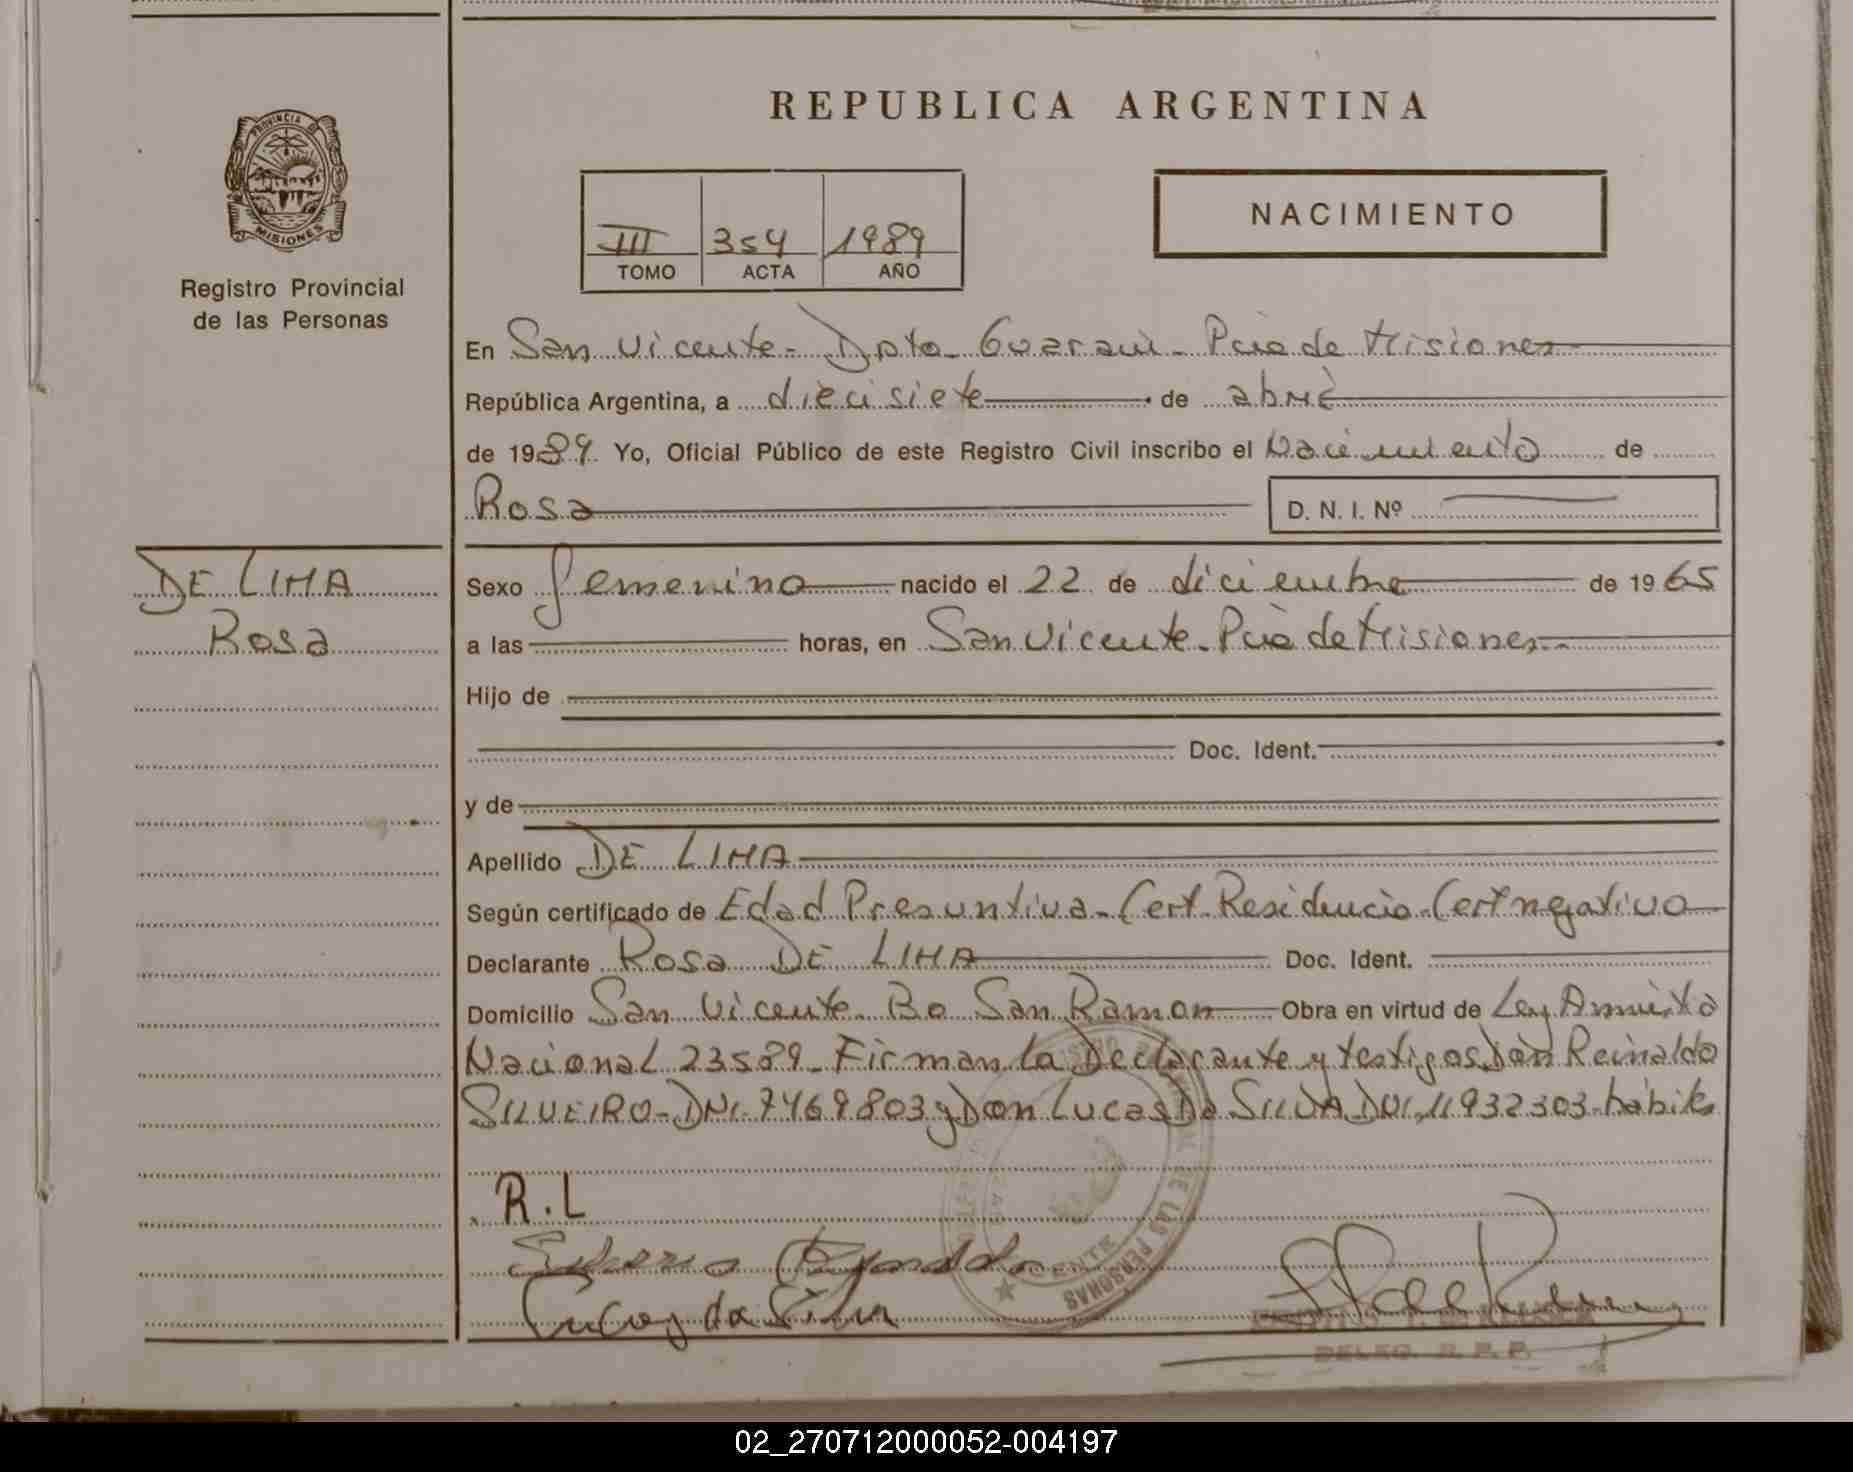 REPUBLICA ARGENTINA
PROVINCIA DE
MISIONES
Registro Provincial
de las Personas
III 354 1989
TOMO ACTA AÑO
NACIMIENTO
En San Vicente - Dpto Guaraní - Pcia de Misiones
República Argentina, a diecisiete de abril
de 1989 Yo, Oficial Público de este Registro Civil inscribo el Nacimiento de
Rosa
D. N. I. Nº
DE LIMA
Rosa
Sexo femenino nacido el 22 de diciembre de 1965
a las horas, en San Vicente - Pcia de Misiones
Hijo de
Doc. Ident.
y de
Apellido DE LIMA
Según certificado de Edad Presuntiva - Cert. Residencia - Cert negativo
Declarante Rosa DE LIMA Doc. Ident.
Domicilio San Vicente Bo San Ramon Obra en virtud de Ley Amnistia
Nacional 23589 - Firman la Declarante y testigos Don Reinaldo
SILVEIRO - DNI. 7469803 y Don Lucas Da SILVA DNI. 11932303 - habiles
R.L
Lucas da Silva
DE LAS PERSONAS
DELEG. R. P. P.
02_270712000052-004197